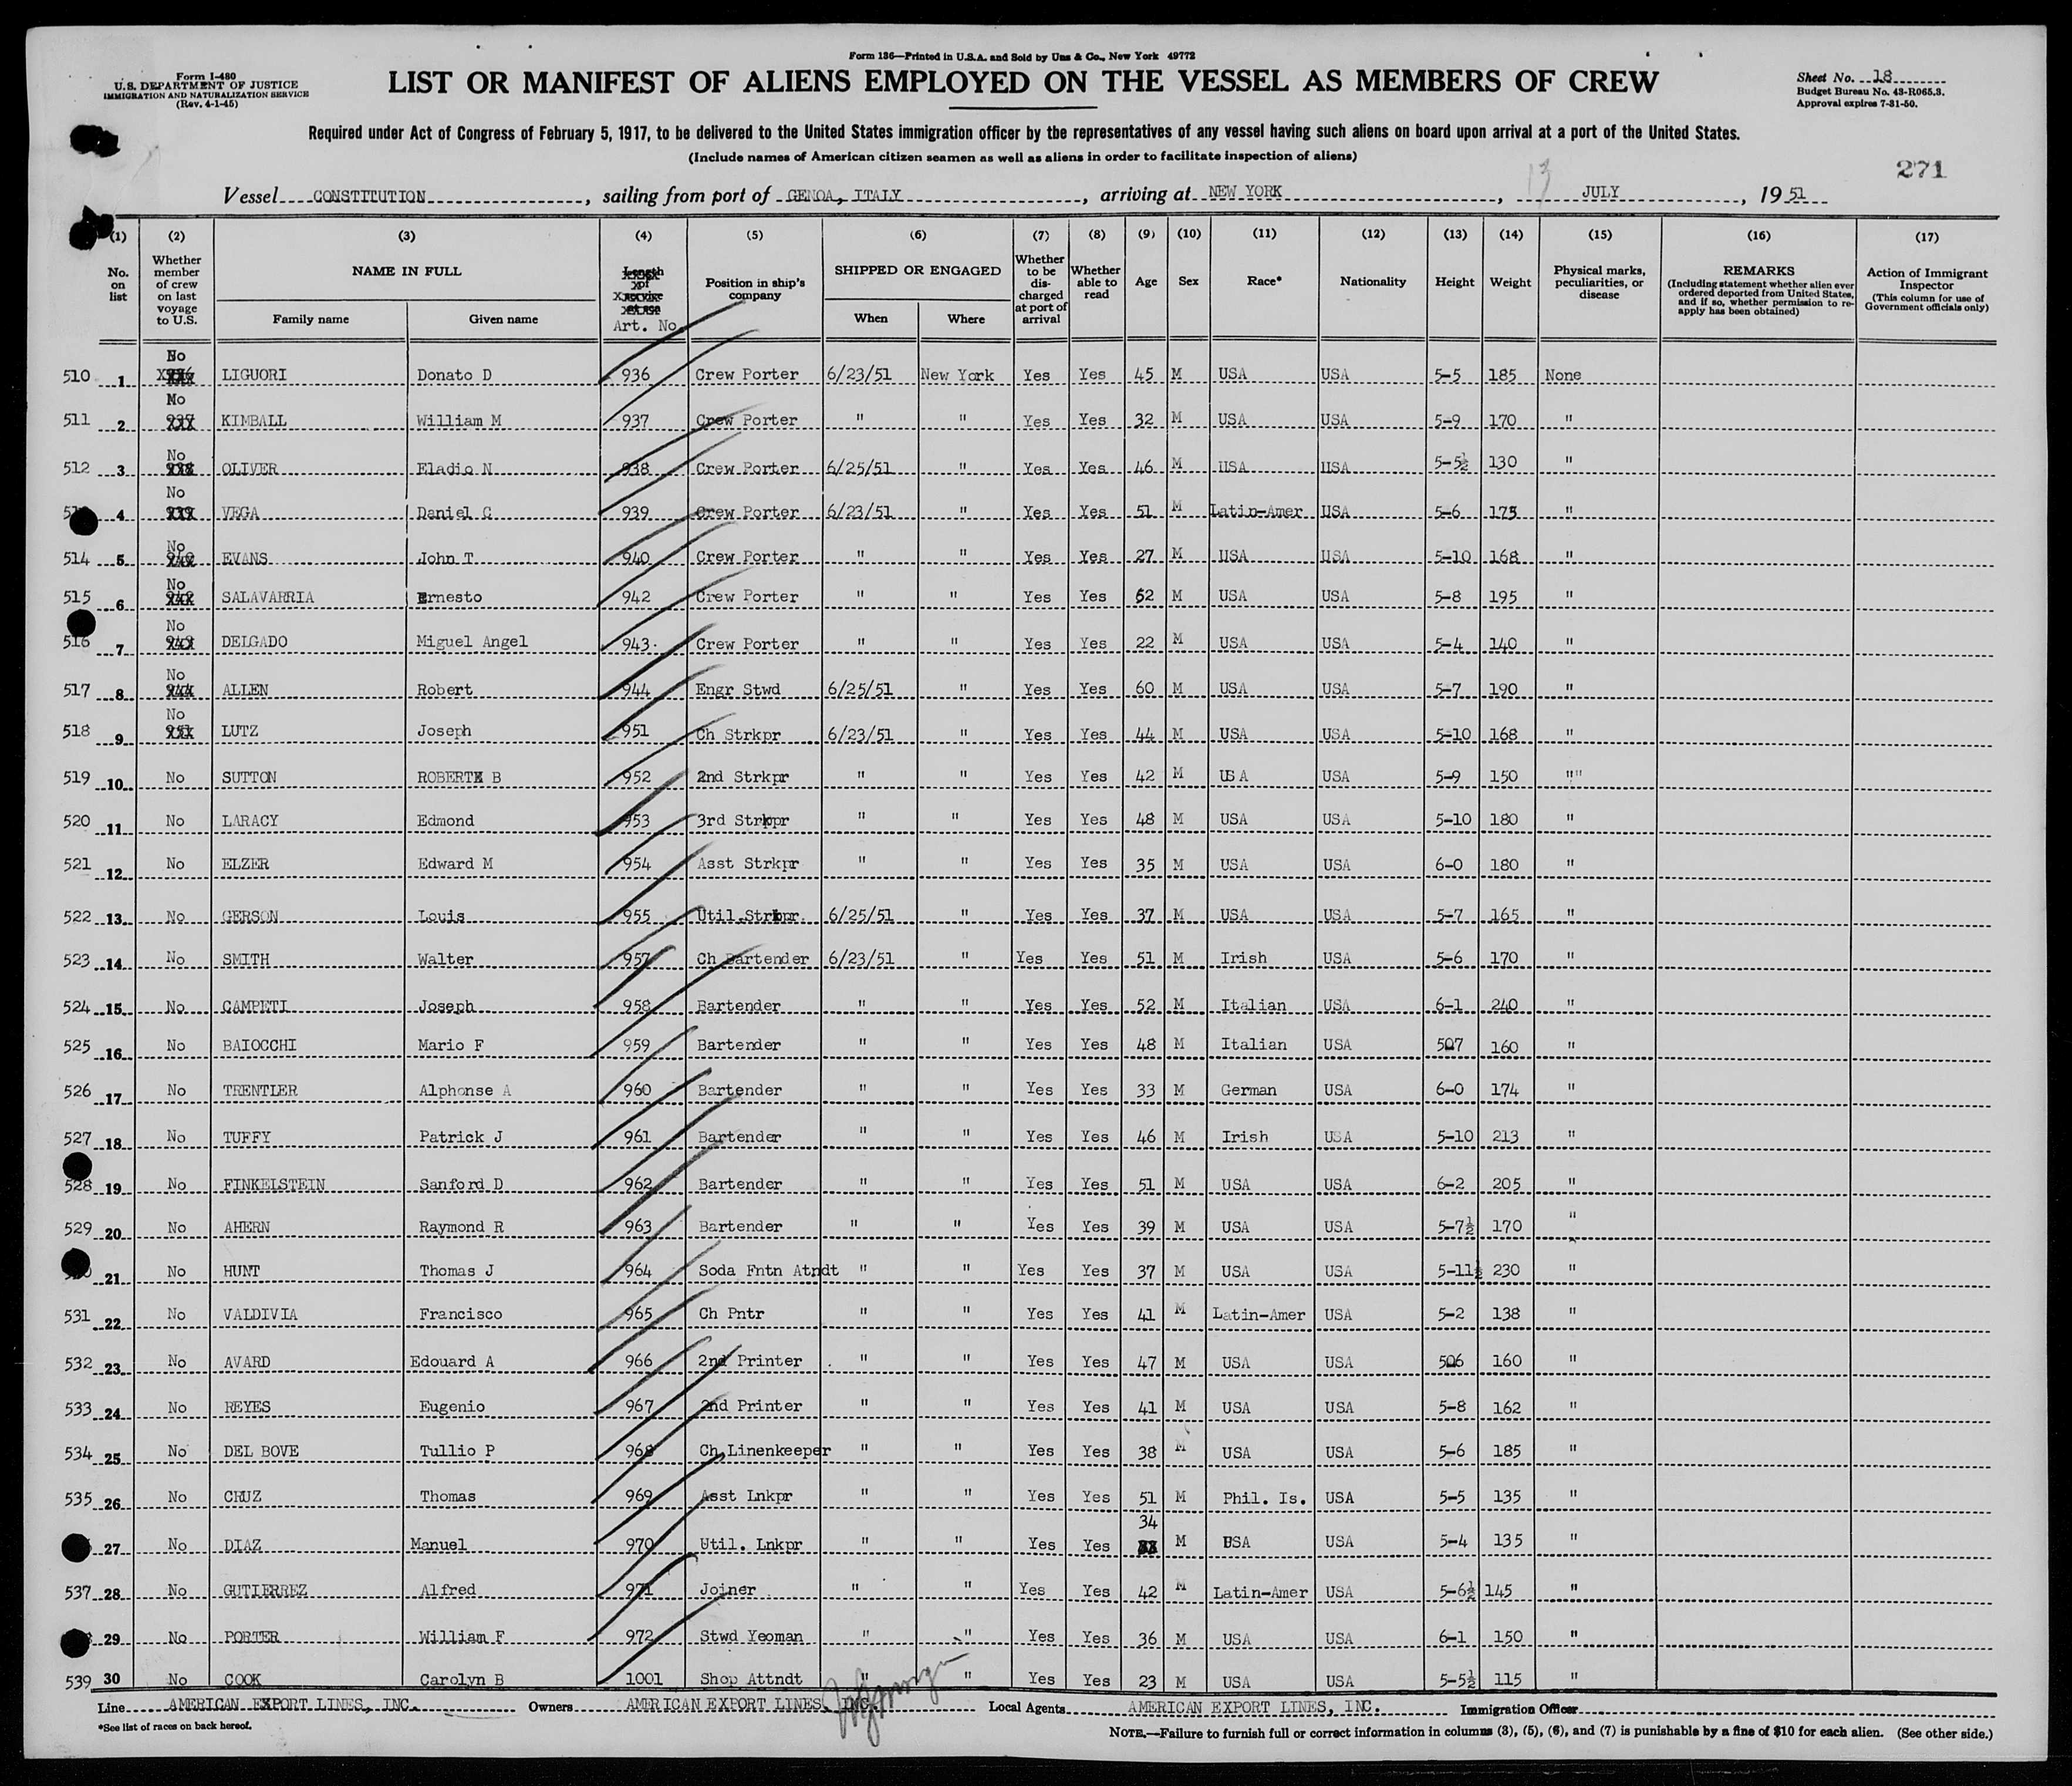 Form 136—Printed in U.S.A. and Sold by Unz & Co., New York 49772
Form I-480
U.S. DEPARTMENT OF JUSTICE
IMMIGRATION AND NATURALIZATION SERVICE
(Rev. 4-1-45)
LIST OR MANIFEST OF ALIENS EMPLOYED ON THE VESSEL AS MEMBERS OF CREW
Sheet No. 18
Budget Bureau No. 43-R065.3.
Approval expires 7-31-50.
Required under Act of Congress of February 5, 1917, to be delivered to the United States immigration officer by the representatives of any vessel having such aliens on board upon arrival at a port of the United States.
(Include names of American citizen seamen as well as aliens in order to facilitate inspection of aliens)
271
Vessel CONSTITUTION, sailing from port of GENOA, ITALY, arriving at NEW YORK, 13 JULY, 19 51
(1) (2) (3) (4) (5) (6) (7) (8) (9) (10) (11) (12) (13) (14) (15) (16) (17)
No. on list
Whether member of crew on last voyage to U.S.
NAME IN FULL
Family name
Given name
Art. No.
Position in ship's company
SHIPPED OR ENGAGED
When
Where
Whether to be discharged at port of arrival
Whether able to read
Age
Sex
Race*
Nationality
Height
Weight
Physical marks, peculiarities, or disease
REMARKS
(Including statement whether alien ever ordered deported from United States, and if so, whether permission to reapply has been obtained)
Action of Immigrant Inspector
(This column for use of Government officials only)
510 1 No LIGUORI Donato D 936 Crew Porter 6/23/51 New York Yes Yes 45 M USA USA 5-5 185 None
511 2 No KIMBALL William M 937 Crew Porter " " Yes Yes 32 M USA USA 5-9 170 "
512 3 No OLIVER Eladio N 938 Crew Porter 6/25/51 " Yes Yes 46 M USA USA 5-5½ 130 "
4 No VEGA Daniel C 939 Crew Porter 6/23/51 " Yes Yes 51 M Latin-Amer USA 5-6 175 "
514 5 No EVANS John T 940 Crew Porter " " Yes Yes 27 M USA USA 5-10 168 "
515 6 No SALAVARRIA Ernesto 942 Crew Porter " " Yes Yes 62 M USA USA 5-8 195 "
516 7 No DELGADO Miguel Angel 943 Crew Porter " " Yes Yes 22 M USA USA 5-4 140 "
517 8 No ALLEN Robert 944 Engr Stwd 6/25/51 " Yes Yes 60 M USA USA 5-7 190 "
518 9 No LUTZ Joseph 951 Ch Strkpr 6/23/51 " Yes Yes 44 M USA USA 5-10 168 "
519 10 No SUTTON ROBERTX B 952 2nd Strkpr " " Yes Yes 42 M USA USA 5-9 150 ""
520 11 No LARACY Edmond 953 3rd Strkpr " " Yes Yes 48 M USA USA 5-10 180 "
521 12 No ELZER Edward M 954 Asst Strkpr " " Yes Yes 35 M USA USA 6-0 180 "
522 13 No GERSON Louis 955 Util Strkpr 6/25/51 " Yes Yes 37 M USA USA 5-7 165 "
523 14 No SMITH Walter 957 Ch Bartender 6/23/51 " Yes Yes 51 M Irish USA 5-6 170 "
524 15 No CAMPETI Joseph 958 Bartender " " Yes Yes 52 M Italian USA 6-1 240 "
525 16 No BAIOCCHI Mario F 959 Bartender " " Yes Yes 48 M Italian USA 5-7 160 "
526 17 No TRENTLER Alphonse A 960 Bartender " " Yes Yes 33 M German USA 6-0 174 "
527 18 No TUFFY Patrick J 961 Bartender " " Yes Yes 46 M Irish USA 5-10 213 "
528 19 No FINKELSTEIN Sanford D 962 Bartender " " Yes Yes 51 M USA USA 6-2 205 "
529 20 No AHERN Raymond R 963 Bartender " " Yes Yes 39 M USA USA 5-7½ 170 "
21 No HUNT Thomas J 964 Soda Fntn Atndt " " Yes Yes 37 M USA USA 5-11½ 230 "
531 22 No VALDIVIA Francisco 965 Ch Pntr " " Yes Yes 41 M Latin-Amer USA 5-2 138 "
532 23 No AVARD Edouard A 966 2nd Printer " " Yes Yes 47 M USA USA 5-6 160 "
533 24 No REYES Eugenio 967 2nd Printer " " Yes Yes 41 M USA USA 5-8 162 "
534 25 No DEL BOVE Tullio P 968 Ch Linenkeeper " " Yes Yes 38 M USA USA 5-6 185 "
535 26 No CRUZ Thomas 969 Asst Lnkpr " " Yes Yes 51 M Phil. Is. USA 5-5 135 "
27 No DIAZ Manuel 970 Util. Lnkpr " " Yes Yes 34 M USA USA 5-4 135 "
537 28 No GUTIERREZ Alfred 971 Joiner " " Yes Yes 42 M Latin-Amer USA 5-6½ 145 "
29 No PORTER William F 972 Stwd Yeoman " " Yes Yes 36 M USA USA 6-1 150 "
539 30 No COOK Carolyn B 1001 Shop Attndt " " Yes Yes 23 M USA USA 5-5½ 115 "
Line AMERICAN EXPORT LINES, INC. Owners AMERICAN EXPORT LINES, INC. Local Agents AMERICAN EXPORT LINES, INC. Immigration Officer
*See list of races on back hereof.
NOTE.—Failure to furnish full or correct information in columns (3), (5), (6), and (7) is punishable by a fine of $10 for each alien. (See other side.)